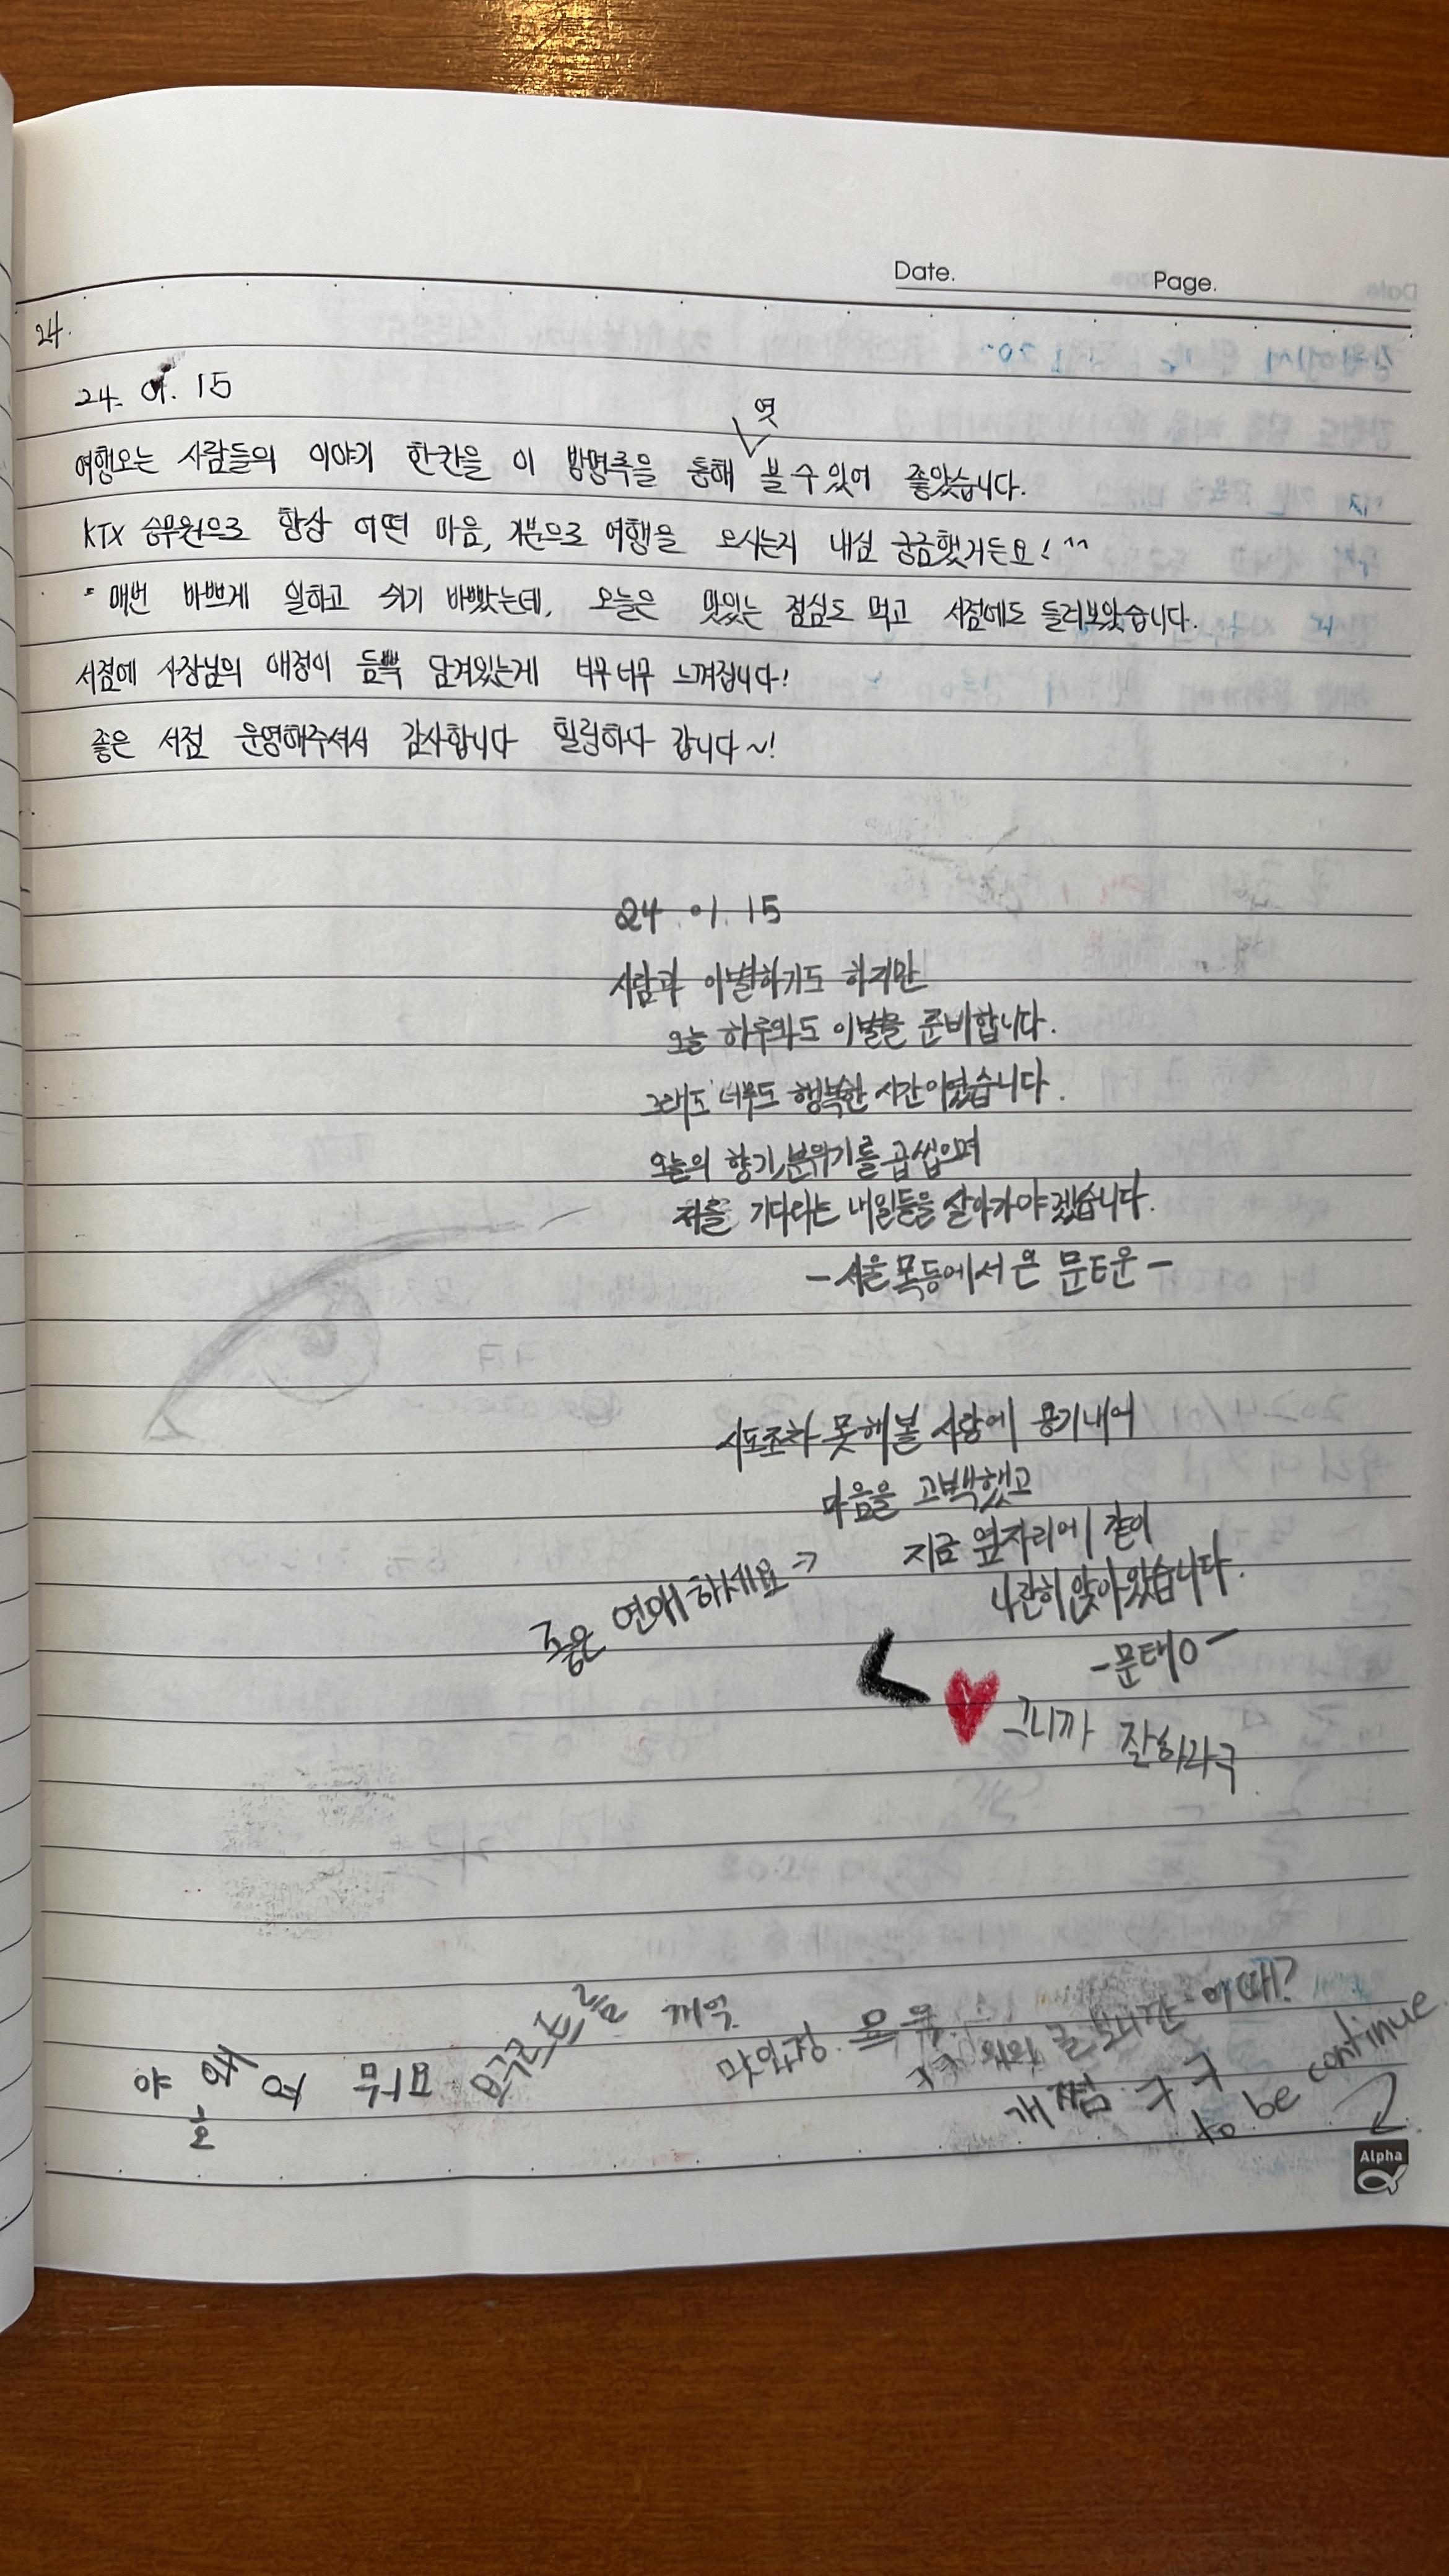 Date. Page.
24.
24. 01. 15
엿
여행오는 사람들의 이야기 한칸을 이 방명록을 통해 볼 수 있어 좋았습니다.
KTX 승무원으로 항상 어떤 마음, 기분으로 여행을 오시는지 내심 궁금했거든요! ^^
매번 바쁘게 일하고 쉬기 바빴는데, 오늘은 맛있는 점심도 먹고 서점에도 들러보았습니다.
서점에 사장님의 애정이 듬뿍 담겨있는게 너무너무 느껴집니다!
좋은 서점 운영해주셔서 감사합니다 힐링하다 갑니다~!
24. 01. 15
사람과 이별하기도 하지만
오늘 하루와도 이별을 준비합니다.
그래도 너무도 행복한 시간이였습니다.
오늘의 향기, 분위기를 곱씹으며
저를 기다리는 내일들을 살아가야겠습니다.
- 서울 목동에서 온 문태운 -
시도조차 못해볼 사람에 용기내어
마음을 고백했고
지금 옆자리에 같이
나란히 앉아왔습니다.
- 문태이 -
좋은 연애하세요 ->
< ♥ 그니까 잘하라구
야 왜 여 뭐요
호
꺼억
맛있장
글 보니깐 어때?
개쩜 ㅋㅋ
to be continue
Alpha